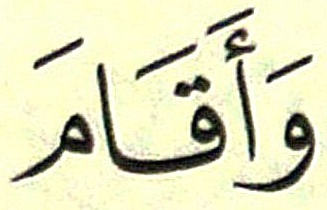 وَأَقَامَ